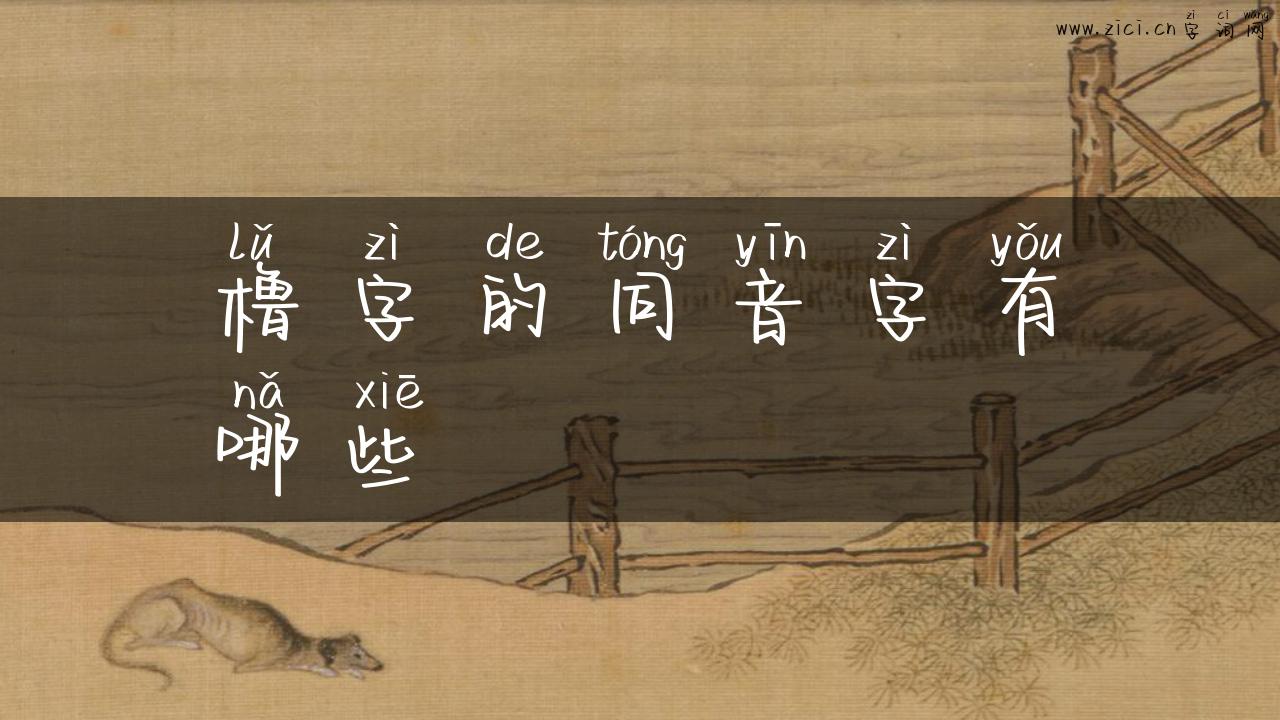 zì cí wǎng
www.zici.cn 字 词 网
lǔ zì de tóng yīn zì yǒu
橹 字 的 同 音 字 有
nǎ xiē
哪 些